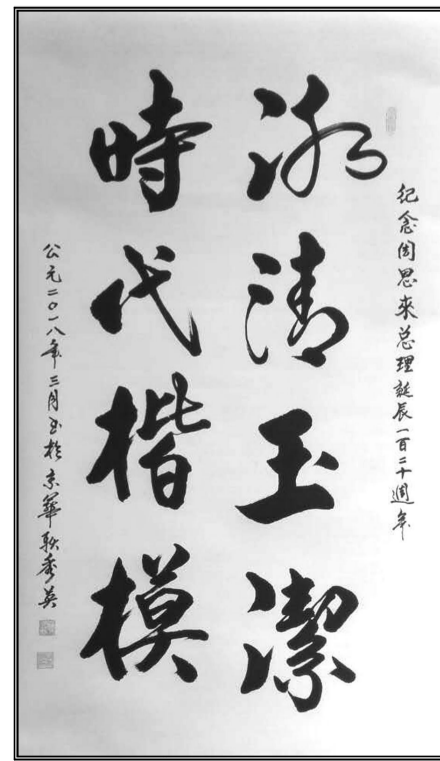 纪念周恩來总理誕辰一百二十週年
冰清玉潔
時代楷模
公元二〇一八年三月书於京華耿秀英